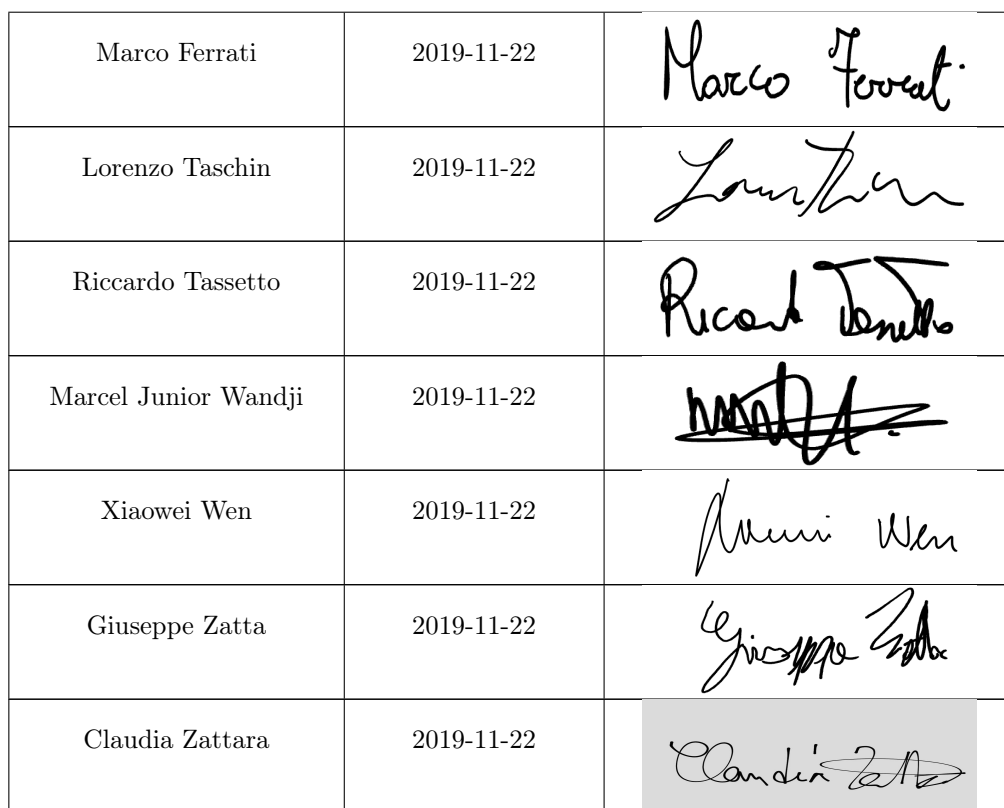 Marco Ferrati 2019-11-22 Marco Ferrati
Lorenzo Taschin 2019-11-22
Riccardo Tassetto 2019-11-22 Riccardo Tassetto
Marcel Junior Wandji 2019-11-22
Xiaowei Wen 2019-11-22 Wen
Giuseppe Zatta 2019-11-22 Giuseppe Zatta
Claudia Zattara 2019-11-22 Claudia